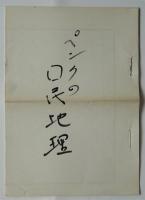 ペンクの
国民地理